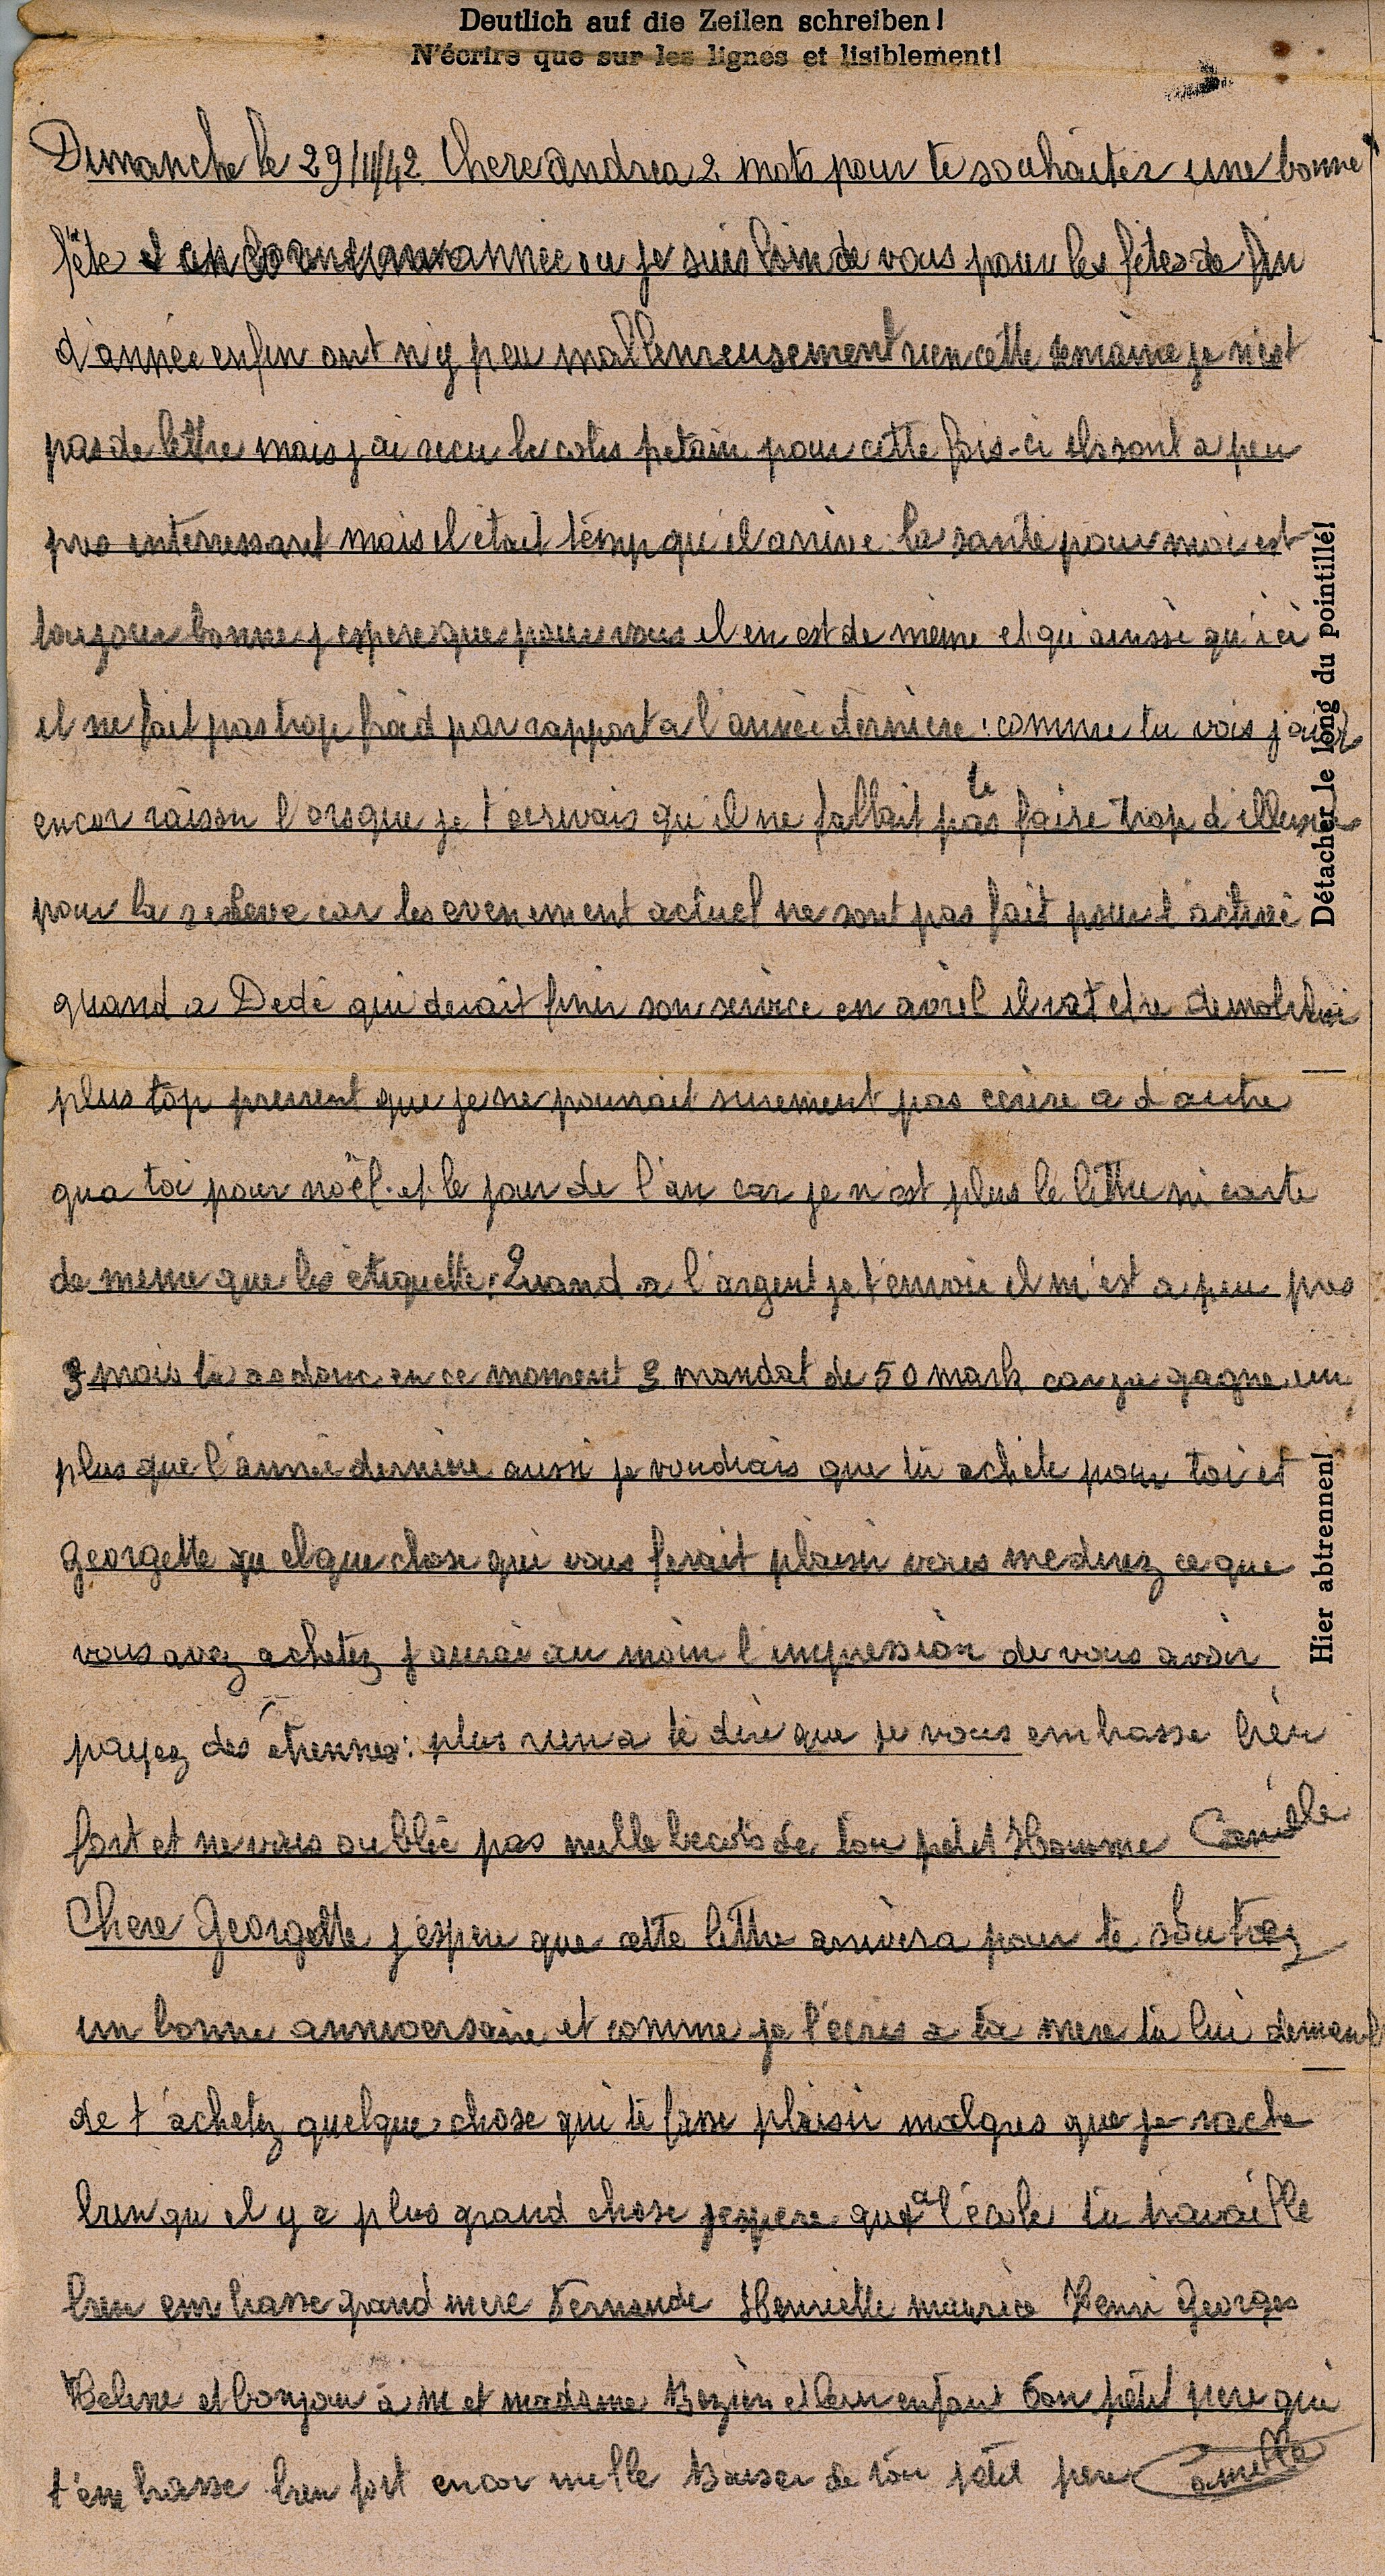 Deutlich auf die Zeilen schreiben!
N'écrire que sur les lignes et lisiblement!
Dimanche le 29/11/42 Chere andrea 2 mots pour te souhaiter une bonne
fête année ou je suis loin de vous pour les fêtes de fin
d'année enfin ont n'y peu malheureusement rien cette semaine je n'est
pas de lettre mais j'ai recu le colis petain pour cette fois-ci ils sont a peu
pres interressant mais il était témp qu'il arrive la santé pour moi est
toujour bonne j'espere que pour vous il en est de même et qu'ainssi qu'ici
il ne fait pas trop froid par rapport a l'année dernière : comme tu vois j'avais
encor raison lorsque je t'ecrivais qu'il ne fallait pas te faire trop d'illusion
pour la releve car les evenement actuel ne sont pas fait pour l'activé
quand a Dedé qui devait finir son service en avril il vat etre demobilisé
plus top pressent que je ne pourrait surement pas ecrire a d'autre
qua toi pour noël et le jour de l'an car je n'est plus le lettre ni carte
de meme que les etiquette. Quand a l'argent je t'envoie il m'est a peu pres
3 mois tu as donc en ce moment 3 mandat de 50 mark car je gagne un
plus que l'année dernière aussi je voudrais que tu achete pour toi et
Georgette quelque chose qui vous ferait plaisir vous me direz ce que
vous avez achetez j'aurai au moin l'impression de vous avoir
payez des étrennes : plus rien a te dire que je vous embrasse bien
fort et ne vous oublie pas mille becots de ton petit Homme Camille
Chere Georgette j'espere que cette lettre arrivera pour te
un bonne anniversaire et comme je l'écris a ta mere tu lui demand
de t'achetez quelque chose qui te fasse plaisir malgres que je sache
bien qu'il y a plus grand chose j'espere qu'a l'école tu travaille
bien embrasse grand mere Fernande Henriette maurice Henri Georges
Helene et bonjour à M et madame et leur enfant ton petit pere qui
t'embrasse bien fort encor mille Baiser de ton petit pere Camille
Détacher le long du pointillé!
Hier abtrennen!